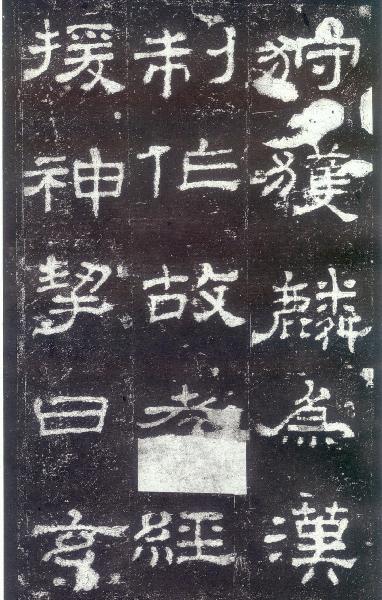 狩獲麟爲漢
制作故孝經
援神挈曰玄